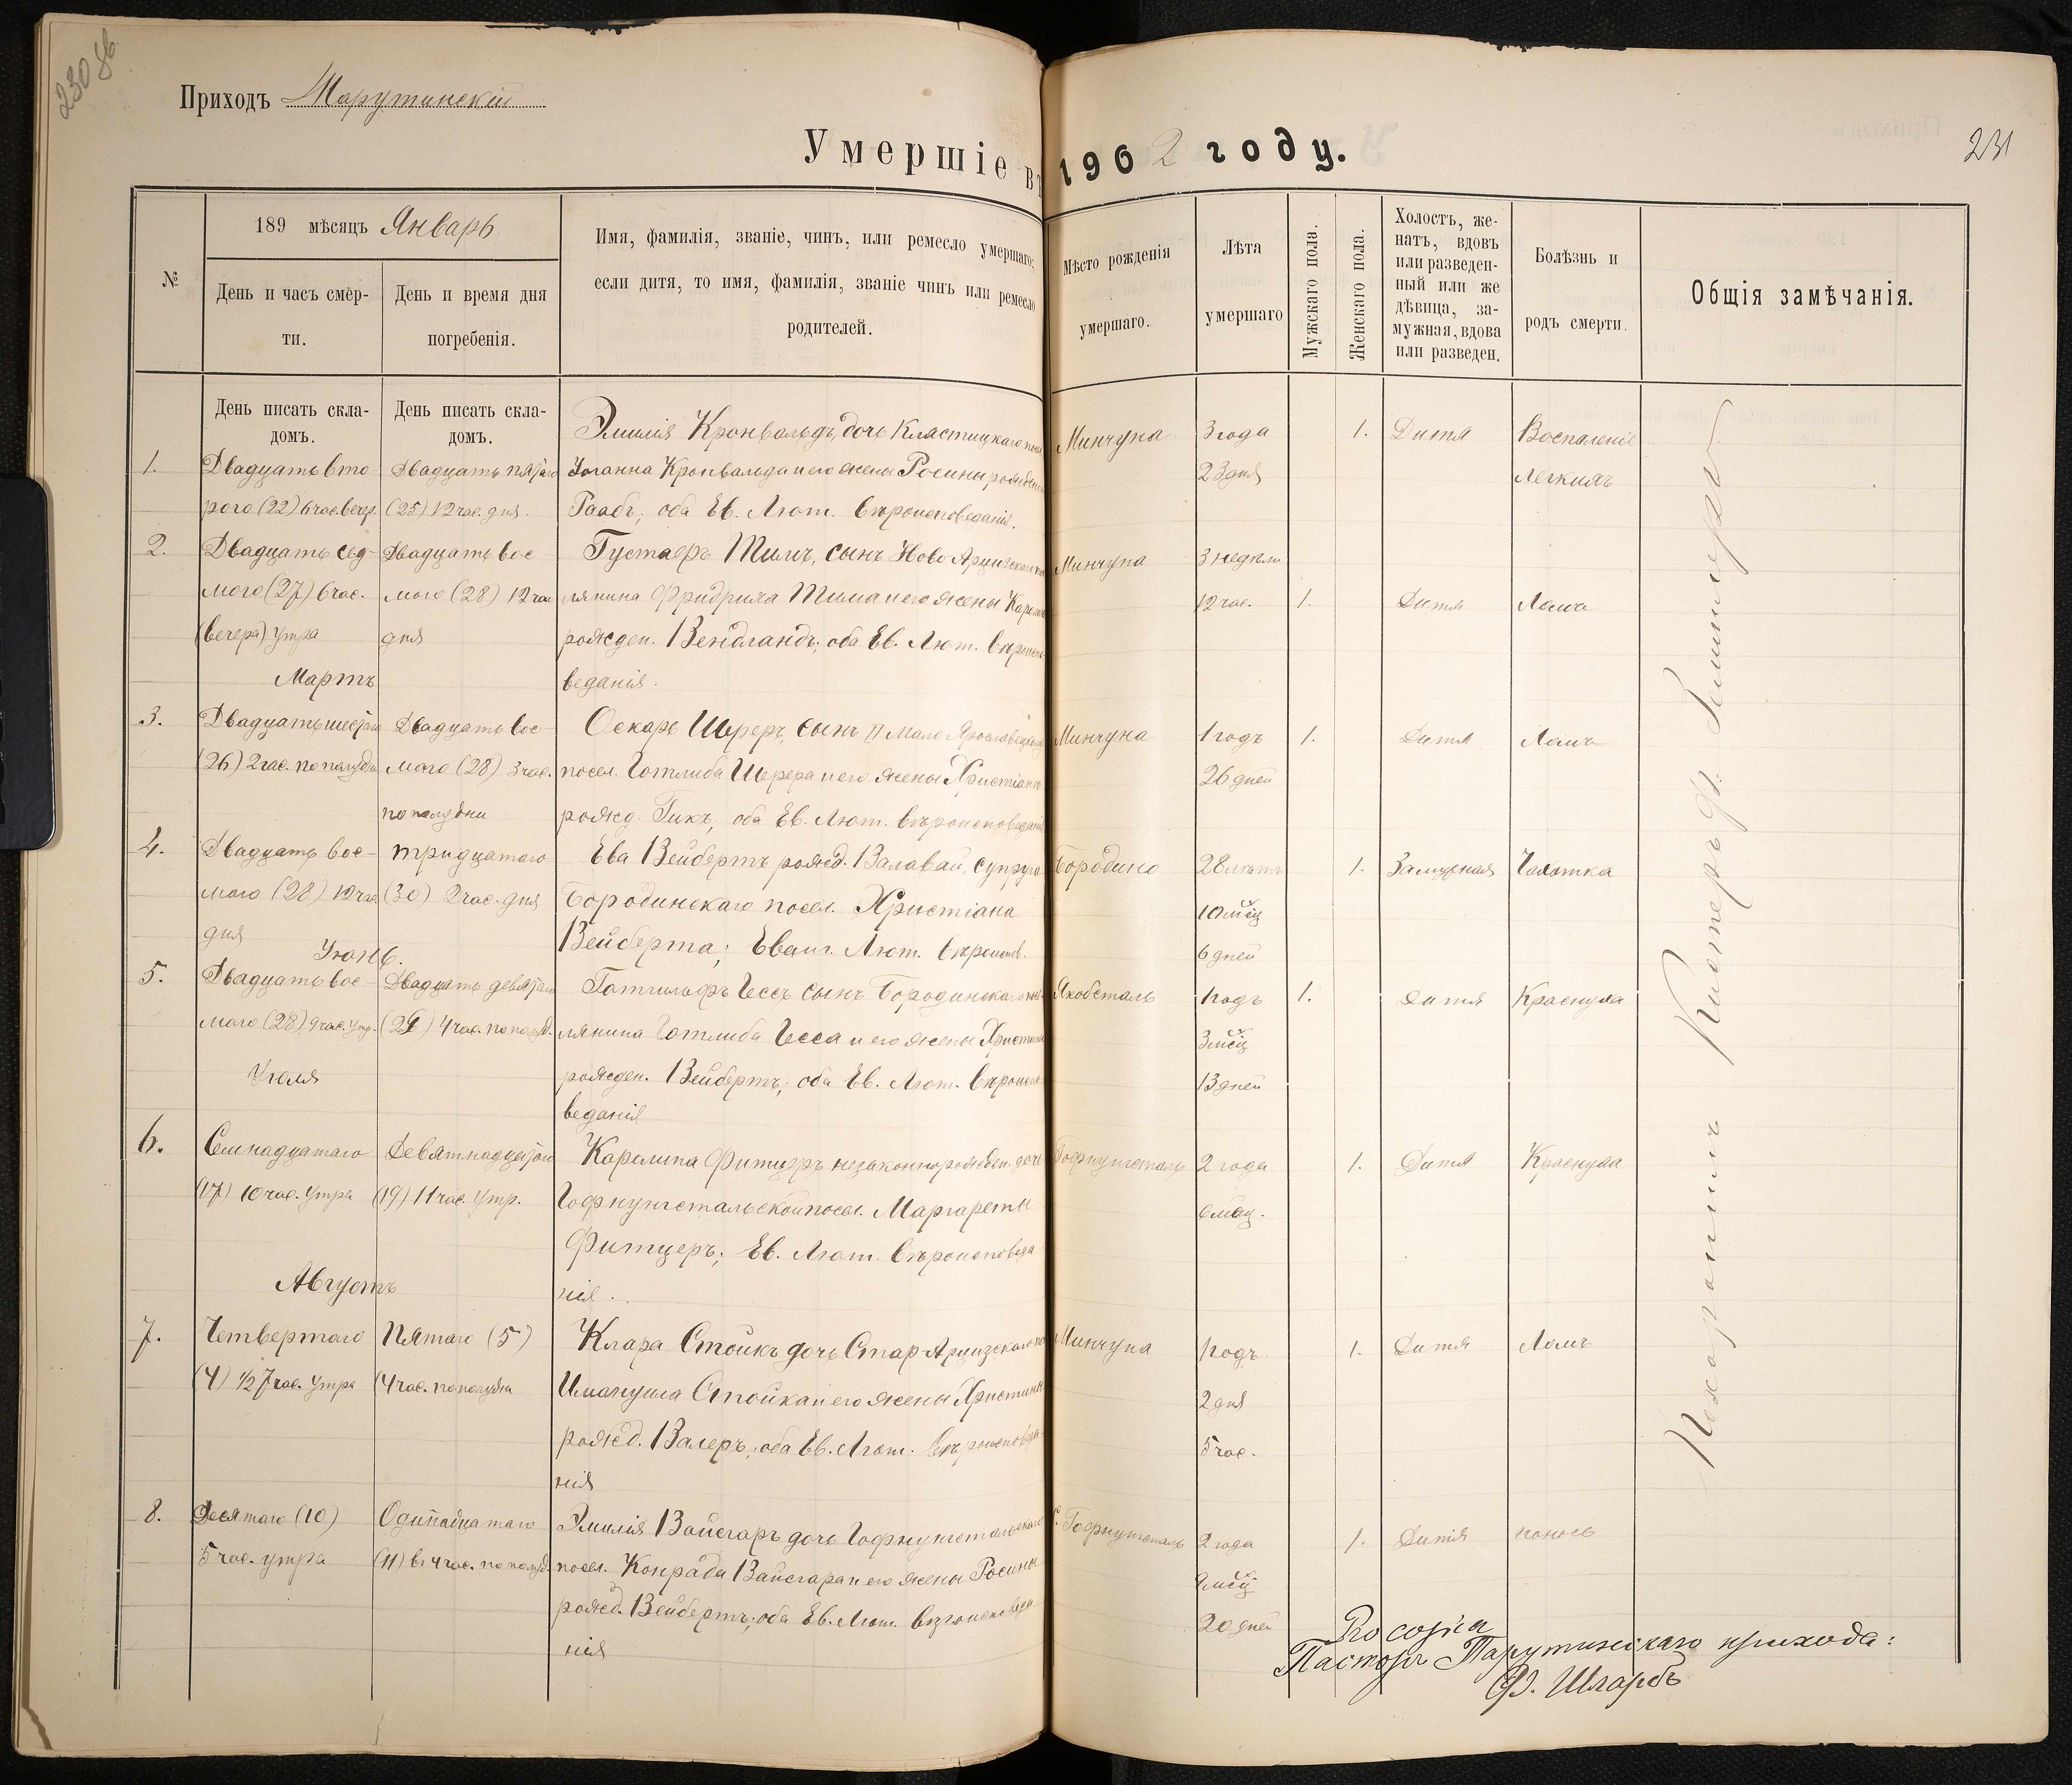 230 об
Приходъ Тарутинскій
Умершіе въ 1902 году.
231
№
189 мѣсяцъ Январь
День и часъ смер-
ти.
День и время дня
погребенія.
Имя, фамилія, званіе, чинъ, или ремесло умершаго;
если дитя, то имя, фамилія, званіе чинъ или ремесло
родителей.
Мѣсто рожденія
умершаго.
Лѣта
умершаго
Мужскаго пола.
Женскаго пола.
Холостъ, же-
натъ, вдовъ
или разведен-
ный или же
дѣвица, за-
мужная, вдова
или разведен.
Болѣзнь и
родъ смерти.
Общія замѣчанія.
День писать скла-
домъ.
День писать скла-
домъ.
1.
Двадцать вто
рого (22) 6 час. вечер.
Двадцать пятаго
(25) 12 час. дня.
Эмилія Кронвальдъ, дочь Кластицкаго посел
Іоганна Кронвальда и его жены Росины, рожден
Раабъ; оба Ев. Лют. вѣроисповеданія.
Минчуна
3 года
23 дня
1.
Дитя
Воспаленіе
легкихъ
2.
Двадцать сед-
мого (27) 6 час.
(вечера) утра
Двадцать вос
мого (28) 12 час
дня
Густафъ Тимъ, сынъ Ново Арцизскаго посе
лянина Фридриха Тима и его жены Каролин
рожден. Вендландъ; оба Ев. Лют. вѣроиспо-
веданія.
Минчуна
3 недѣли
12 час.
1.
Дитя
Ломъ
Мартъ
3.
Двадцать шестаго
(26) 2 час. по полудни
Двадцать вос-
мого (28) 3 час.
по полудни
Оскаръ Шереръ, сынъ II Мало Ярославецкаго
посел. Готлиба Шерера и его жены Христіаны
рожд. Гикъ; оба Ев. Лют. вѣроисповеданія
Минчуна
1 годъ
26 дней
1.
Дитя
Ломъ
4.
Двадцать вос-
мого (28) 12 час.
дня
тридцатаго
(30) 2 час. дня
Ева Вейбертъ рожд. Валавай, супруга
Бородинскаго посел. Христіана
Вейберта; Еванг. Лют. вѣроиспов.
Бородино
28 лѣтъ
10 мѣсц
6 дней
1.
Замужная
Чахотка
Іюнь.
5.
Двадцать вос-
мого (28) 9 час. утр.
Двадцать девятаго
(29) 4 час. по полуд.
Готгильфъ Гессъ сынъ Бородинскаго посе-
лянина Готлиба Гесса и его жены Христины
рожден. Вейбертъ; оба Ев. Лют. вѣроиспо-
веданія
Якобсталь
1 годъ
3 мѣсц
13 дней
1.
Дитя
Краснуха
Іюля
6.
Семнадцатаго
(17) 10 час. утра
Девятнадцатаго
(19) 11 час. утр.
Каролина Фитцеръ, незаконнорожден. дочь
Гофнунгстальской посел. Маргареты
Фитцеръ; Ев. Лют. вѣроисповеда-
нія.
Гофнунгсталь
2 года
6 мѣсц.
1.
Дитя
Краснуха
Августъ
7.
Четвертаго
(4) 1/2 7 час. утра
Пятаго (5)
(4 час. по полудни
Клара Стойкъ дочь Стар Арцизскаго по
Имануила Стойка и его жены Христины
рожд. Валеръ; оба Ев. Лют. вѣроисповеда-
нія
Минчуна
1 годъ
2 дня
5 час.
1.
Дитя
Ломъ
8.
Десятаго (10)
5 час. утра
Одинадцатаго
(11) въ 4 час. по полуд.
Эмилія Вайсгаръ дочь Гофнунгстальскаго
посел. Конрада Вайсгара и его жены Росины
рожд. Вейбертъ; оба Ев. Лют. вѣроисповеда
нія
Гофнунгсталь
2 года
9 мѣсц
20 дней
1.
Дитя
поносъ
Похоронилъ Кистеръ Ф.
Pro copia
Пасторъ Тарутинскаго прихода:
Ф. Шларбъ